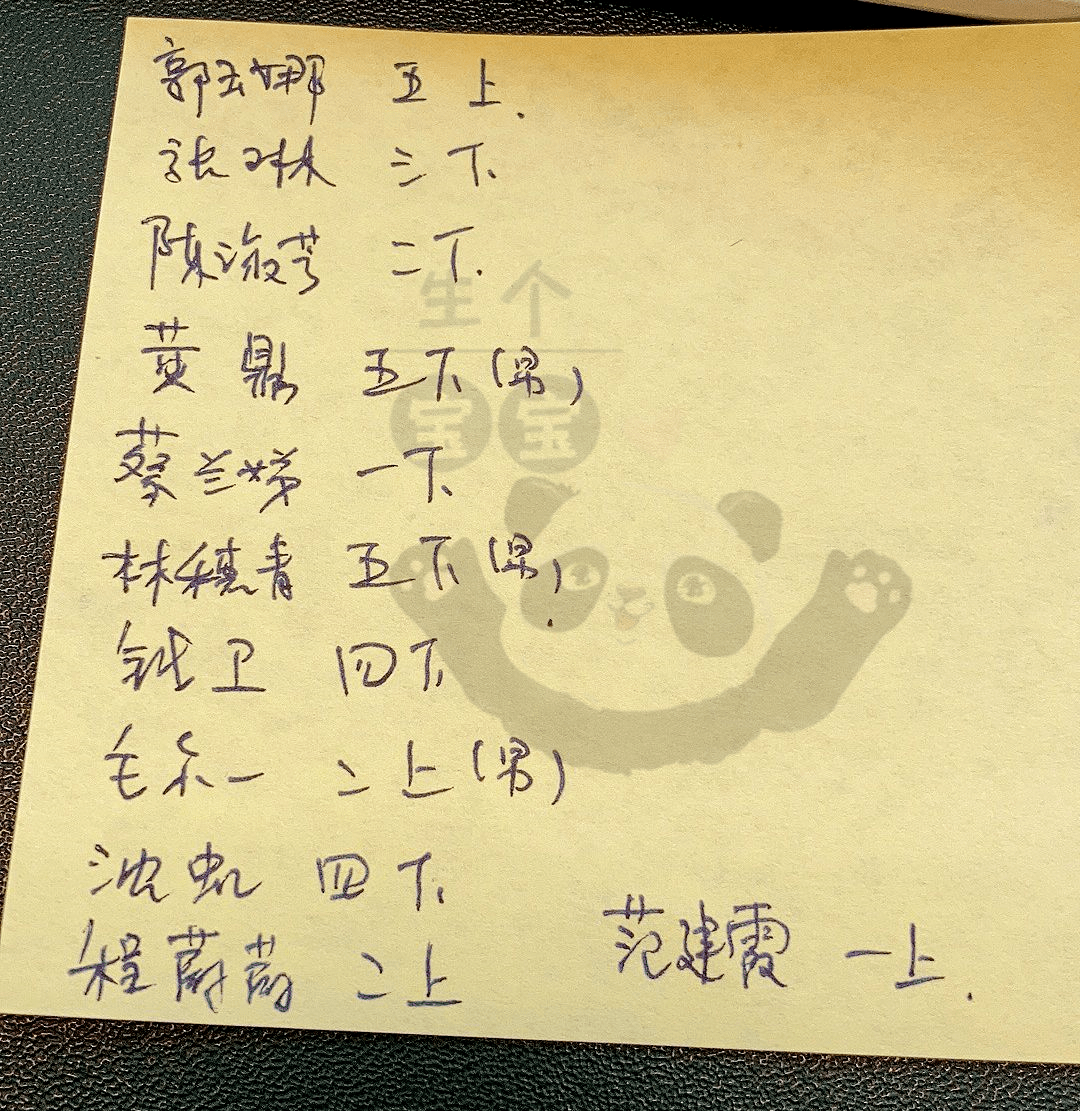 郭玉娜 五上.
张琳 三下.
陈淑芳 二下.
生个
黄鼎 五下(男)
宝宝
蔡兰娣 一下.
林穗青 五下(男)
钱卫 四下.
毛 一 二上(男)
沈虹 四下.
程蔚蔚 二上
范建霞 一上.